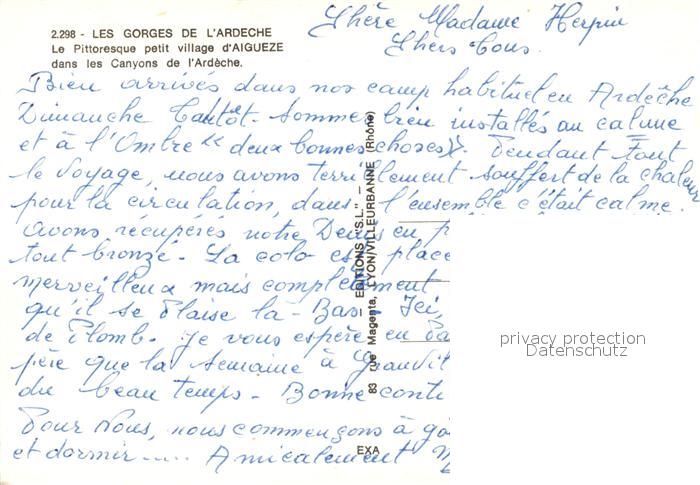 2.298 - LES GORGES DE L'ARDECHE
Le Pittoresque petit village d'AIGUEZE
dans les Canyons de l'Ardèche.
Chère Madame Herpin
Chers Tous.
Bien arrivés dans nos camp habituel en Ardèche
Dimanche tantôt. Sommes bien installés au calme
et à l'Ombre << deux bonnes choses >>. Pendant tout
le voyage, nous avons terriblement souffert de la chaleur
pour la circulation, dans l'ensemble c'était calme.
Avons récupérés notre Denis en p
tout bronzé. La colo est place
merveilleux mais complètement
qu'il se plaise là-Bas. Ici,
de Plomb. Je vous espère en
père que la semaine à Granvil
du beau temps. Bonne conti
Pour Nous, nous commençons à
et dormir..... Amicalement
EDITIONS "S.L."
83 rue Magenta, LYON/VILLEURBANNE (Rhône)
EXA
privacy protection
Datenschutz